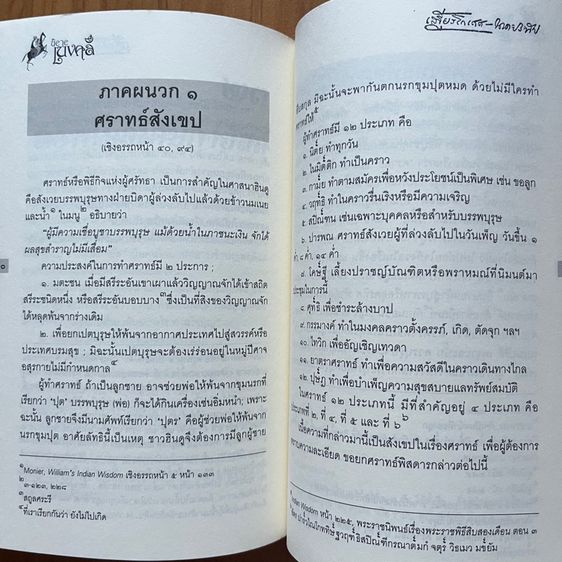 นิยาย
เบงคลี
ภาคผนวก ๑
ศราทธ์สังเขป
(เชิงอรรถหน้า ๔๐, ๙๔)
ศราทธ์หรือพิธีกิจแห่งผู้ศรัทธา เป็นการสำคัญในศาสนาฮินดู
คือสังเวยบรรพบุรุษทางฝ่ายบิดาผู้ล่วงลับไปแล้วด้วยข้าวนมเนย
และน้ำ๑ ในมนู๒ อธิบายว่า
"ผู้มีความเชื่อบูชาบรรพบุรุษ แม้ด้วยน้ำในภาชนะเงิน จักได้
ผลสุขสำราญไม่มีเสื่อม"
ความประสงค์ในการทำศราทธ์มี ๒ ประการ ;
๑. มตะชน เมื่อมีสรีระอันเขาเผาแล้ววิญญาณจักได้เข้าสถิต
สรีระชนิดหนึ่ง หรือสรีระอันบอบบาง๓ซึ่งเป็นที่สิงของวิญญาณจัก
ได้หลุดพ้นจากร่างเดิม
๒. เพื่อยกเปตบุรุษให้พ้นจากอากาศประเทศไปสู่สวรรค์หรือ
ประเทศบรมสุข ; มิฉะนั้นเปตบุรุษจะต้องเร่ร่อนอยู่ในหมู่ปีศาจ
อสุรกายไม่มีกำหนดกาล๔
ผู้ทำศราทธ์ ถ้าเป็นลูกชาย อาจช่วยพ่อให้พ้นจากขุมนรกที่
เรียกว่า "ปุต" บรรพบุรุษ (พ่อ) ก็จะได้กินเครื่องเซ่นอิ่มหนำ; เพราะ
ฉะนั้น ลูกชายจึงมีนามศัพท์เรียกว่า "ปุตร" คือผู้ช่วยพ่อให้พ้นจาก
นรกขุมปุต อาศัยลัทธินี้เป็นเหตุ ชาวฮินดูจึงต้องการมีลูกผู้ชาย
๑Monier, William's Indian Wisdom เชิงอรรถหน้า ๕ หน้า ๑๓๓
๒๓-๑๒๓, ๒๒๘
๓สถูลศะรีระ
๔ที่เราเรียกกันว่า ยังไม่ไปเกิด
สืบสกุล มิฉะนั้นจะพากันตกนรกขุมปุตหมด ด้วยไม่มีใครทำ
ศราทธ์ให้๕
ผู้ทำศราทธ์มี ๑๒ ประเภท คือ
๑. นิต๎ย ทำทุกวัน
๒. ไนมิต๎ติก ทำเป็นคราว
๓. กาม๎ย ทำตามสมัครเพื่อหวังประโยชน์เป็นพิเศษ เช่น ขอลูก
๔. วฤท๎ธิ ทำในคราวรื่นเริงหรือมีความเจริญ
๕. สปิณ๎ฑน เช่นเฉพาะบุคคลหรือสำหรับบรรพบุรุษ
๖. ปารพณ ศราทธ์สังเวยผู้ที่ล่วงลับไปในวันเพ็ญ วันขึ้น ๑
ค่ำ ๘ ค่ำ, ๑๔ ค่ำ
๗. โคษ๎ฐี เลี้ยงปราชญ์บัณฑิตหรือพราหมณ์ที่นิมนต์มา
ประชุมในการนี้
๘. ศุท๎ธิ เพื่อชำระล้างบาป
๙. กรรมางค์ ทำในมงคลคราวตั้งครรภ์, เกิด, ตัดจุก ฯลฯ
๑๐. ไทวิก เพื่ออัญเชิญเทวดา
๑๑. ยาตราศราทธ์ ทำเพื่อความสวัสดีในคราวเดินทางไกล
๑๒. ปุษ๎ฏิ ทำเพื่อบำเพ็ญความสุขสบายแลทรัพย์สมบัติ
ในศราทธ์ ๑๒ ประเภทนี้ มีที่สำคัญอยู่ ๔ ประเภท คือ
ประเภทที่ ๒, ที่ ๔, ที่ ๕ และ ที่ ๖๖
เนื้อความที่กล่าวมานี้เป็นสังเขปในเรื่องศราทธ์ เพื่อผู้ต้องการ
ทราบความละเอียด ขอยกศราทธ์พิสดารกล่าวต่อไปนี้
Indian Wisdom หน้า ๒๒๕, พระราชนิพนธ์เรื่องพระราชพิธีสิบสองเดือน ตอน ๓